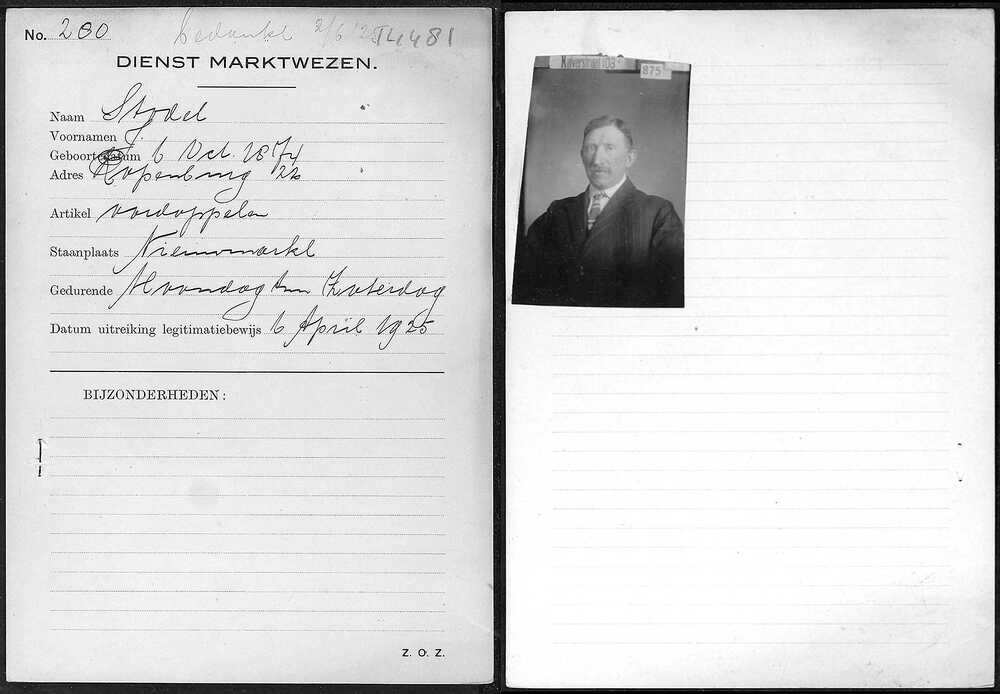 No. 200 Bedankt 2/6 '25 14481
DIENST MARKTWEZEN.
Naam Stodel
Voornamen J.
Geboortedatum 6 Oct. 1874
Adres Rapenburg 22
Artikel
Staanplaats Nieuwmarkt
Gedurende Maandag t/m Zaterdag
Datum uitreiking legitimatiebewijs 6 April 1925
BIJZONDERHEDEN:
Z. O. Z.
Kalverstraat 103
875